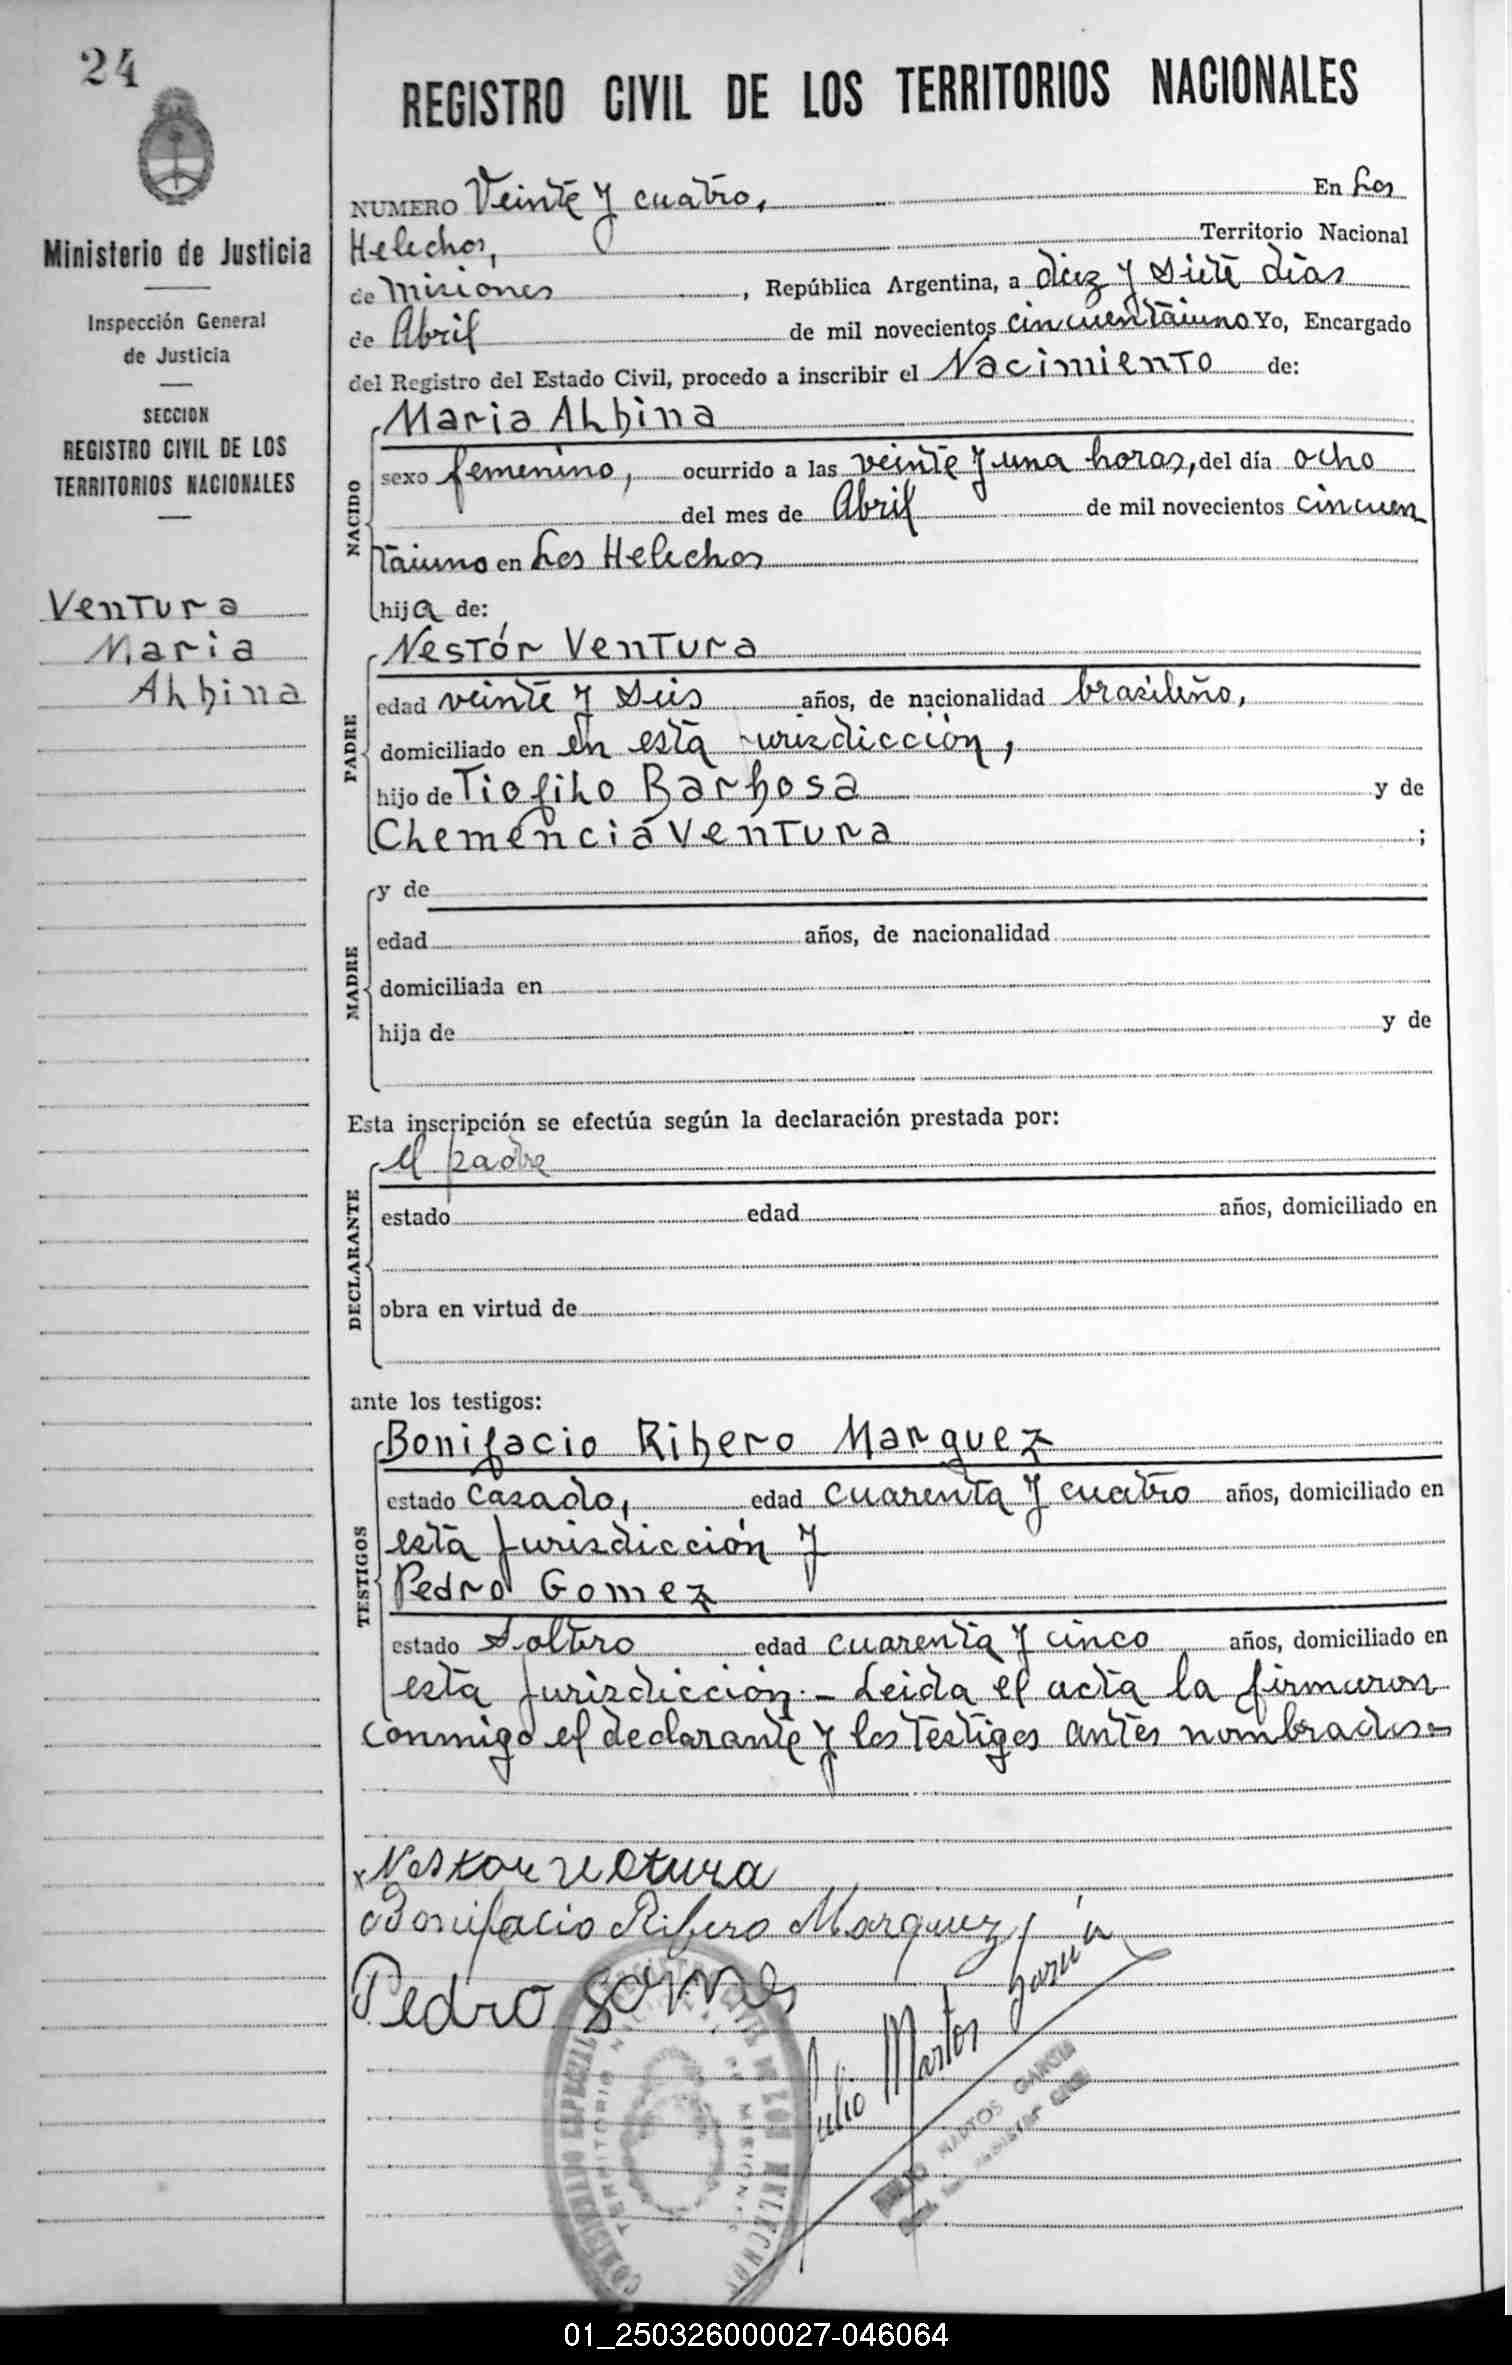 24
Ministerio de Justicia
Inspección General
de Justicia
SECCION
REGISTRO CIVIL DE LOS
TERRITORIOS NACIONALES
Ventura
Maria
Albina
REGISTRO CIVIL DE LOS TERRITORIOS NACIONALES
NUMERO Veinte y cuatro, En Los
Helechos, Territorio Nacional
de Misiones, República Argentina, a diez y siete dias
de Abril de mil novecientos cincuentaiuno Yo, Encargado
del Registro del Estado Civil, procedo a inscribir el Nacimiento de:
NACIDO
Maria Albina
sexo femenino, ocurrido a las veinte y una horas, del día ocho
del mes de Abril de mil novecientos cincuen
taiuno en Los Helechos
hija de:
PADRE
Nestór Ventura
edad veinte y seis años, de nacionalidad brasileño,
domiciliado en en esta jurisdicción,
hijo de Tiofilo Barbosa y de
Clemencia Ventura ;
MADRE
y de
edad años, de nacionalidad
domiciliada en
hija de y de
Esta inscripción se efectúa según la declaración prestada por:
DECLARANTE
el padre
estado edad años, domiciliado en
obra en virtud de
ante los testigos:
TESTIGOS
Bonifacio Ribero Marquez
estado casado, edad cuarenta y cuatro años, domiciliado en
esta jurisdicción y
Pedro Gomez
estado Soltero edad cuarenta y cinco años, domiciliado en
esta jurisdicción.- Leida el acta la firmaron
conmigo el declarante y los testigos antes nombrados.=
x Nestor ventura
Bonifacio Ribero Marquez
Pedro Gomes
Julio Martos Garcia
MARTOS GARCIA
TERRITORIO NACIONAL DE MISIONES
LOS HELECHOS
01_250326000027-046064